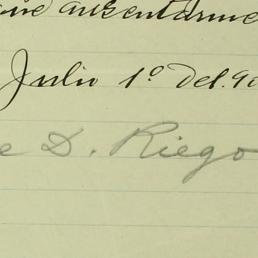 ausentarme
Julio 1º del 90
e D. Riego